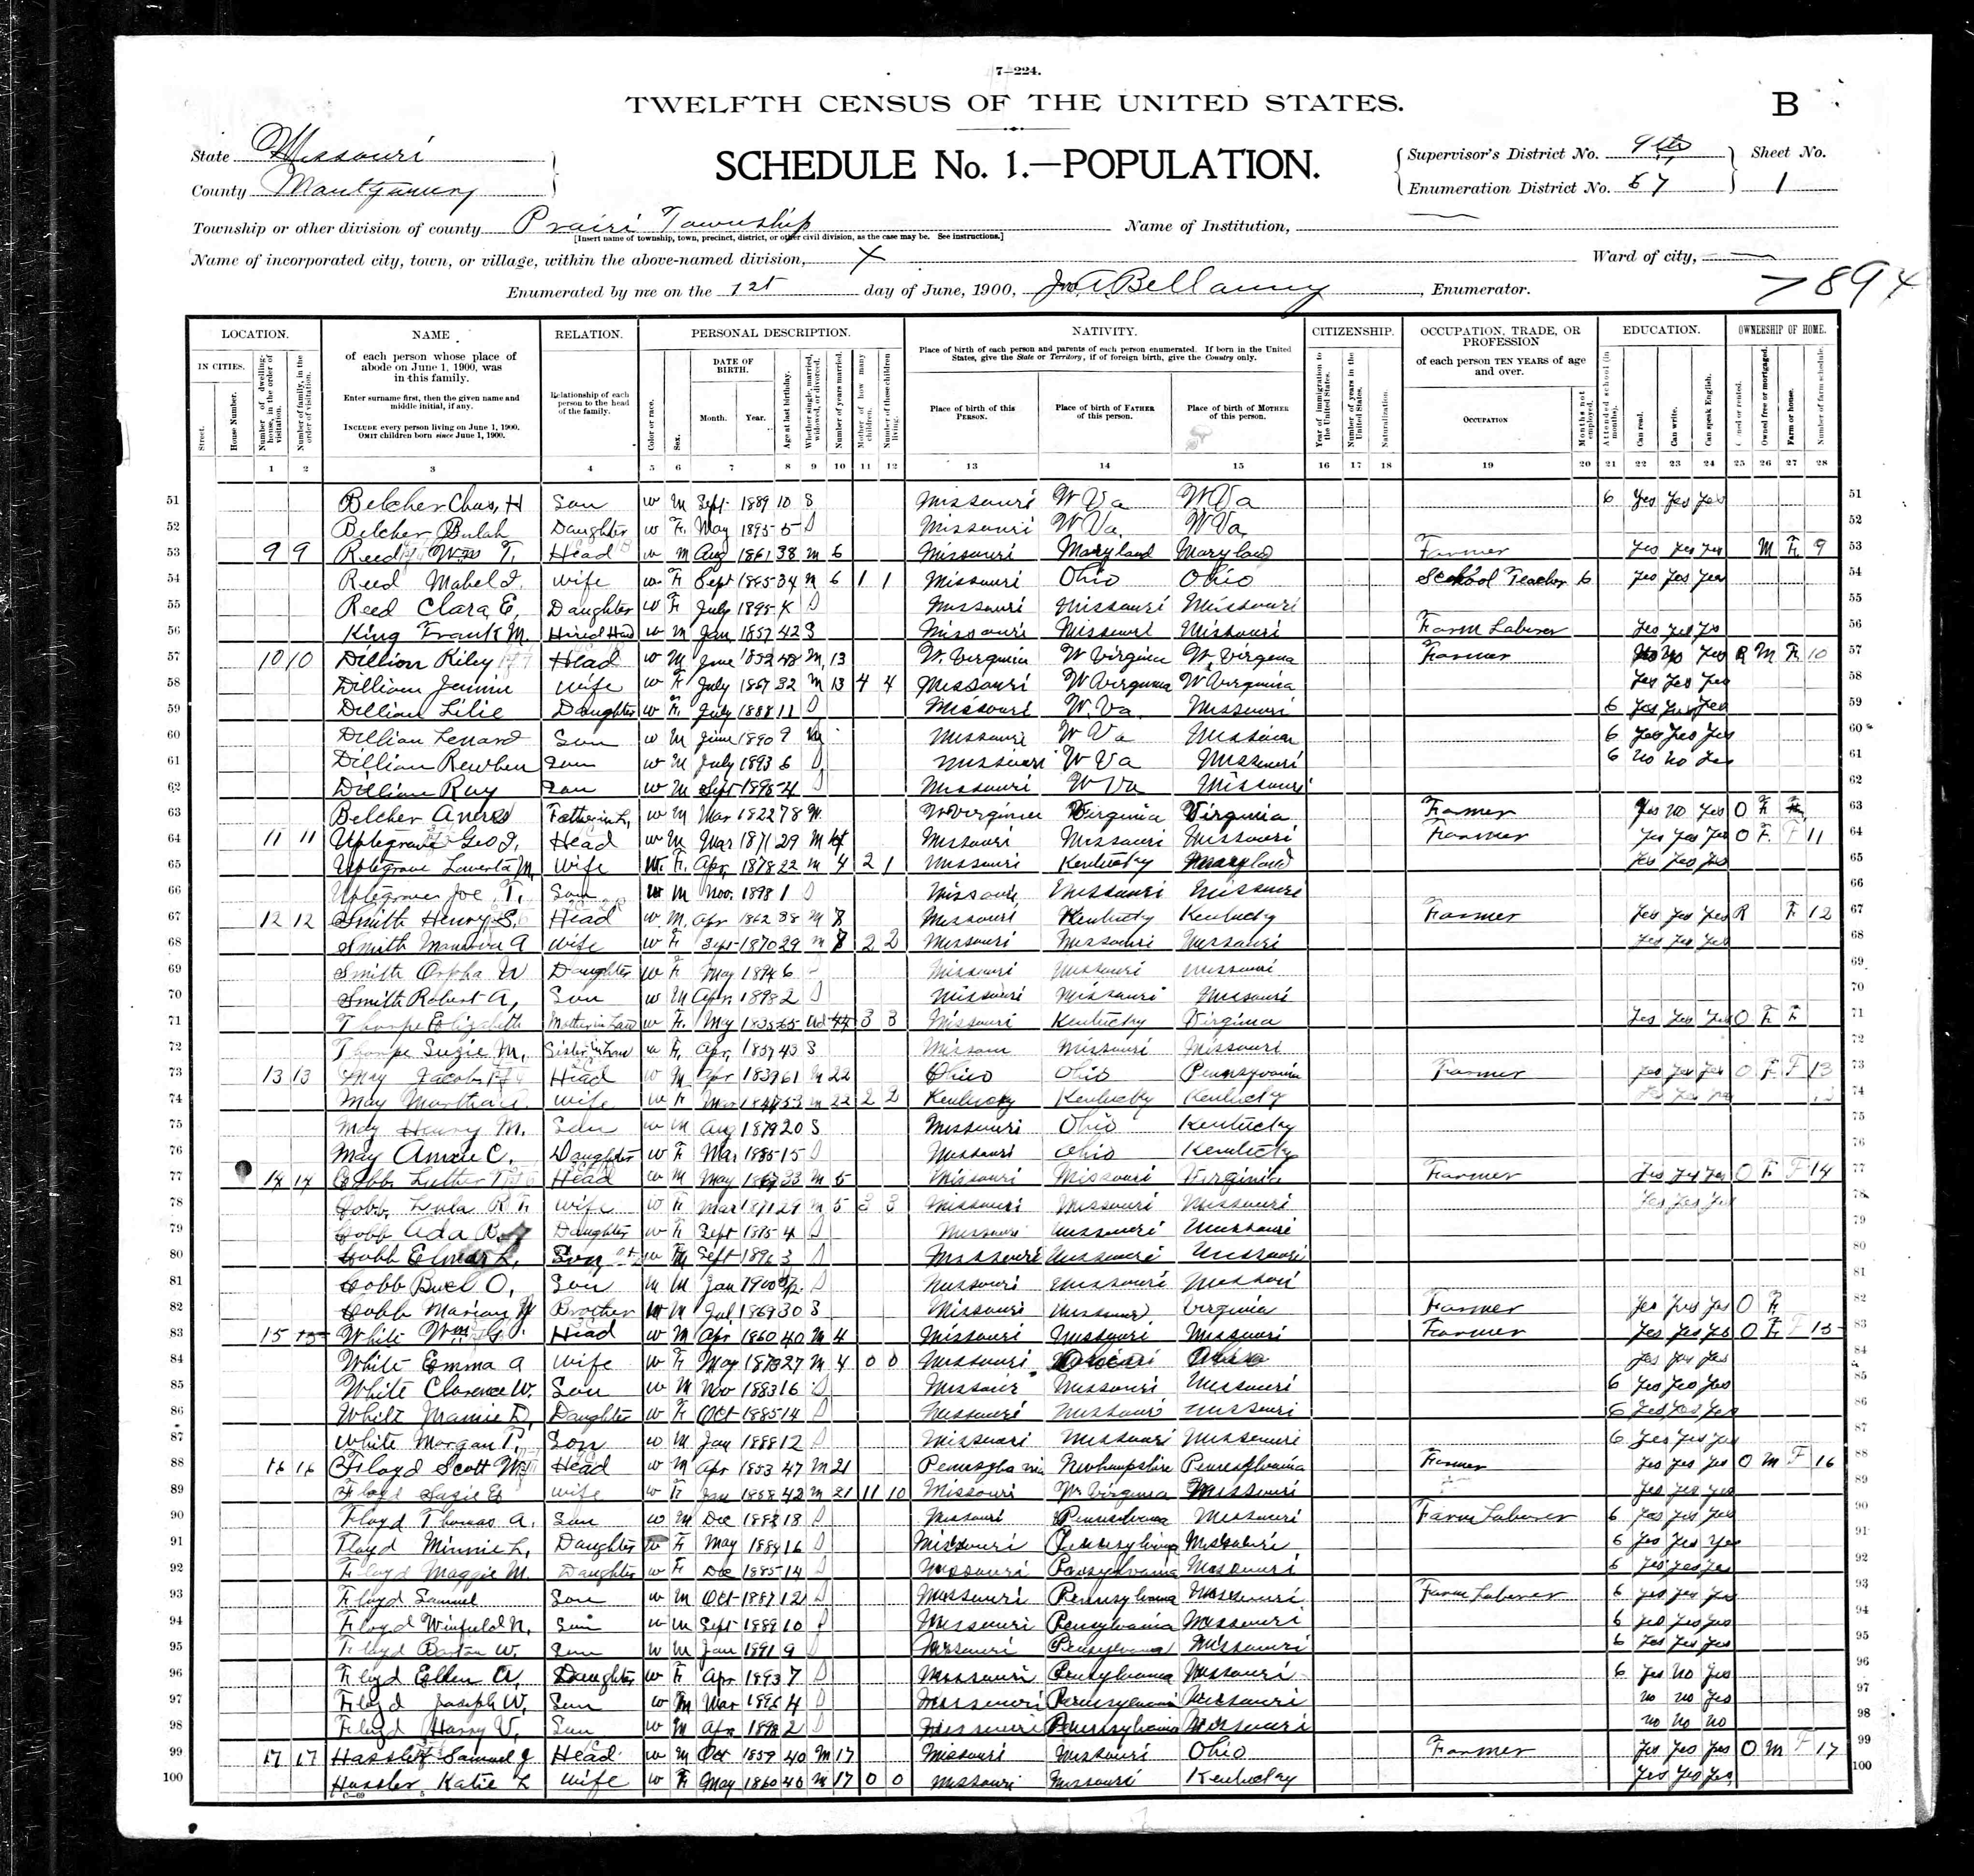 7—224.
TWELFTH CENSUS OF THE UNITED STATES.
B
State Missouri
County Montgomery
SCHEDULE No. 1.—POPULATION.
Supervisor's District No. 9th
Enumeration District No. 67
Sheet No.
1
Township or other division of county Prairi Township
[Insert name of township, town, precinct, district, or other civil division, as the case may be. See instructions.]
Name of Institution,
Name of incorporated city, town, or village, within the above-named division, X
Ward of city,
Enumerated by me on the 1st day of June, 1900, Jno A. Bellamy, Enumerator.
7894
LOCATION. NAME RELATION. PERSONAL DESCRIPTION. NATIVITY. CITIZENSHIP. OCCUPATION, TRADE, OR PROFESSION EDUCATION. OWNERSHIP OF HOME.
IN CITIES. Street. House Number. Number of dwelling-house, in the order of visitation. Number of family, in the order of visitation.
of each person whose place of abode on June 1, 1900, was in this family.
Enter surname first, then the given name and middle initial, if any.
INCLUDE every person living on June 1, 1900. OMIT children born since June 1, 1900.
Relationship of each person to the head of the family.
Color or race. Sex. DATE OF BIRTH. Month. Year. Age at last birthday. Whether single, married, widowed, or divorced. Number of years married. Mother of how many children. Number of these children living.
Place of birth of each person and parents of each person enumerated. If born in the United States, give the State or Territory; if of foreign birth, give the Country only.
Place of birth of this PERSON. Place of birth of FATHER of this person. Place of birth of MOTHER of this person.
Year of immigration to the United States. Number of years in the United States. Naturalization.
of each person TEN YEARS of age and over.
OCCUPATION Months not employed.
Attended school (in months). Can read. Can write. Can speak English.
Owned or rented. Owned free or mortgaged. Farm or house. Number of farm schedule.
1 2 3 4 5 6 7 8 9 10 11 12 13 14 15 16 17 18 19 20 21 22 23 24 25 26 27 28
51 Belcher Chas, H Son W M Sept 1889 10 S Missouri W Va W Va 6 Yes Yes Yes 51
52 Belcher Bulah Daughter W F May 1895 5 S Missouri W Va W Va 52
53 9 9 Reed Wm T. Head W M Aug 1861 38 M 6 Missouri Maryland Maryland Farmer Yes Yes Yes M F 9 53
54 Reed Mabel J. Wife W F Sept 1865 34 M 6 1 1 Missouri Ohio Ohio School Teacher 6 Yes Yes Yes 54
55 Reed Clara E, Daughter W F July 1895 4 S Missouri Missouri Missouri 55
56 King Frank M. Hired Hand W M Jan 1857 42 S Missouri Missouri Missouri Farm Laborer Yes Yes Yes 56
57 10 10 Dillion Riley Head W M June 1852 48 M 13 W. Virginia W Virginia W. Virginia Farmer No Yes R M F 10 57
58 Dillion Jennie Wife W F July 1867 32 M 13 4 4 Missouri W Virginia W Virginia Yes Yes Yes 58
59 Dillian Lilie Daughter W F July 1888 11 S Missouri W. Va Missouri 6 Yes Yes Yes 59
60 Dillian Lenard Son W M June 1890 9 Missouri W Va Missouri 6 Yes Yes Yes 60
61 Dillian Rewben Son W M July 1893 6 S Missouri W Va Missouri 6 No No Yes 61
62 Dillian Ray Son W M Sept 1898 Missouri W Va Missouri 62
63 Belcher Father in L, W M Mar 1822 78 W W Virginia Virginia Virginia Farmer Yes No Yes O F 63
64 11 11 Uptegrove Geo J, Head W M Mar 1871 29 M 4 Missouri Missouri Missouri Farmer Yes Yes Yes O F F 11 64
65 Uptegrove M, Wife W F Apr 1878 22 M 4 2 1 Missouri Kentucky Maryland Yes Yes Yes 65
66 Uptegrove Joe T. Son W M Nov. 1898 1 S Missouri Missouri Missouri 66
67 12 12 Smith Henry S. Head W M Apr 1862 38 M 8 Missouri Kentucky Kentucky Farmer Yes Yes Yes R F 12 67
68 Smith A Wife W F Sept 1870 29 M 8 2 2 Missouri Missouri Missouri Yes Yes Yes 68
69 Smith Orpha W Daughter W F May 1894 6 Missouri Missouri Missouri 69
70 Smith Robert A, Son W M Apr 1898 2 S Missouri Missouri Missouri 70
71 Thorpe Elizabeth Mother in Law W F. May 1835 65 Wd 44 3 3 Missouri Kentucky Virginia Yes Yes Yes O F F 71
72 Thorpe Suzie M, Sister in Law W F, Apr, 1857 43 S Missouri Missouri Missouri 72
73 13 13 May Jacob Head W M Apr 1839 61 M 22 Ohio Ohio Pennsylvania Farmer Yes Yes Yes O F F 13 73
74 May Martha A. Wife W F 53 M 22 2 2 Kentucky Kentucky Kentucky Yes Yes Yes 74
75 May Henry M. Son W M Aug 1879 20 S Missouri Ohio Kentucky 75
76 May Annie C. Daughter W F Mar 1885 15 S Missouri Ohio Kentucky 76
77 14 14 Cobb Luther T Head W M May 1867 33 M 5 Missouri Missouri Virginia Farmer Yes Yes Yes O F F 14 77
78 Cobb, Lula R F. Wife W F Mar 1871 29 M 5 3 3 Missouri Missouri Missouri Yes Yes Yes 78
79 Cobb Ada B. Daughter W F Sept 1895 4 S Missouri Missouri Missouri 79
80 Cobb Elmer L, Son W M Sept 1896 3 S Missouri Missouri Missouri 80
81 Cobb Buel O, Son W M Jan 1900 S Missouri Missouri Missouri 81
82 Cobb Marion W Brother W M Jul 1869 30 S Missouri Missouri Virginia Farmer Yes Yes Yes O F 82
83 15 15 White Wm G. Head W M Apr 1860 40 M 4 Missouri Missouri Missouri Farmer Yes Yes Yes O F F 15 83
84 White Emma A Wife W F May 1873 27 M 4 0 0 Missouri Yes Yes Yes 84
85 White Clarence W. Son W M Nov 1883 16 S Missouri Missouri Missouri 6 Yes Yes Yes 85
86 White Mamie D, Daughter W F Oct 1885 14 S Missouri Missouri Missouri 6 Yes Yes Yes 86
87 White Morgan T, Son W M Jan 1888 12 S Missouri Missouri Missouri 6 Yes Yes Yes 87
88 16 16 Floyd Scott W Head W M Apr 1853 47 M 21 Pennsylvania Newhampshire Pennsylvania Farmer Yes Yes Yes O M F 16 88
89 Floyd Suzie E Wife W F Jan 1858 42 M 21 11 10 Missouri W Virginia Missouri Yes Yes Yes 89
90 Floyd Thomas A. Son W M Dec 18 S Missouri Pennsylvania Missouri Farm Laborer 6 Yes Yes Yes 90
91 Floyd Minnie L, Daughter F May 1884 16 S Missouri Pennsylvania Missouri 6 Yes Yes Yes 91
92 Floyd Maggie M Daughter W F Dec 1885 14 S Missouri Pensylvania Missouri 6 Yes Yes Yes 92
93 Floyd Samuel Son W M Oct 1887 12 S Missouri Pennsylvania Missouri Farm Laborer 6 Yes Yes Yes 93
94 Floyd Winfield N, Son W M Sept 1889 10 S Missouri Pensylvania Missouri 6 Yes Yes Yes 94
95 Floyd Barton W. Son W M Jan 1891 9 S Missouri Pensylvania Missouri 6 Yes Yes Yes 95
96 Floyd Ellen A, Daughter W F Apr 1893 7 S Missouri Pensylvania Missouri 6 Yes No Yes 96
97 Floyd Joseph W, Son W M Mar 1896 4 S Missouri Pennsylvania Missouri No No Yes 97
98 Floyd Harry V, Son W M Apr 1898 2 S Missouri Pennsylvania Missouri No No No 98
99 17 17 Hassler Samuel J Head W M Oct 1859 40 M 17 Missouri Missouri Ohio Farmer Yes Yes Yes O M F 17 99
100 Hassler Katie L Wife W F May 1860 40 M 17 0 0 Missouri Missouri Kentucky Yes Yes Yes 100